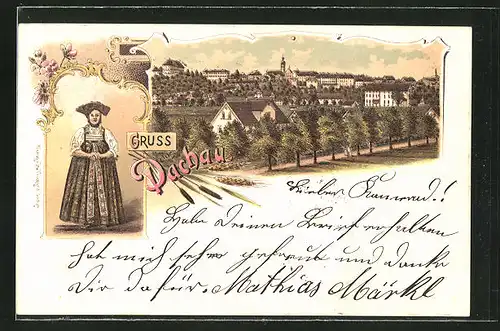 GRUSS
Dachau
Lieber Kamerad.!
Habe Deinen Brief erhalten
hat mich sehr gefreut und danke
Dir dafür. Mathias Märkl